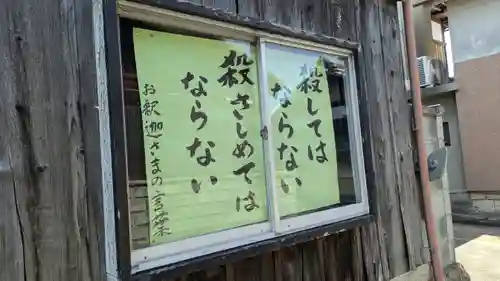 殺しては
ならない
殺さしめては
ならない
お釈迦さまの言葉